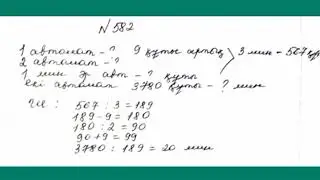 N 582
1 автомат - ? 9 құты артық
2 автомат - ? 3 мин - 567 құ
1 мин әр авт - ? құты
екі автомат 3780 құты - ? мин
567 : 3 = 189
189 - 9 = 180
180 : 2 = 90
90 + 9 = 99
3780 : 189 = 20 мин